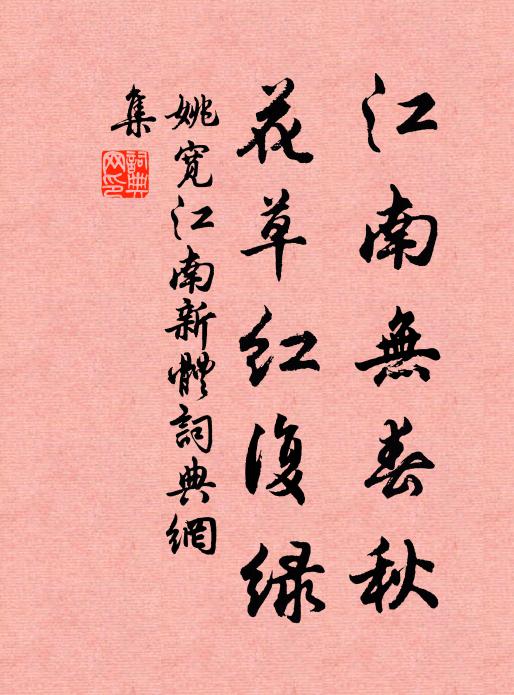 江南無春秋
花草紅復緑
姚寬江南新體詞典網
集
詞典
网印